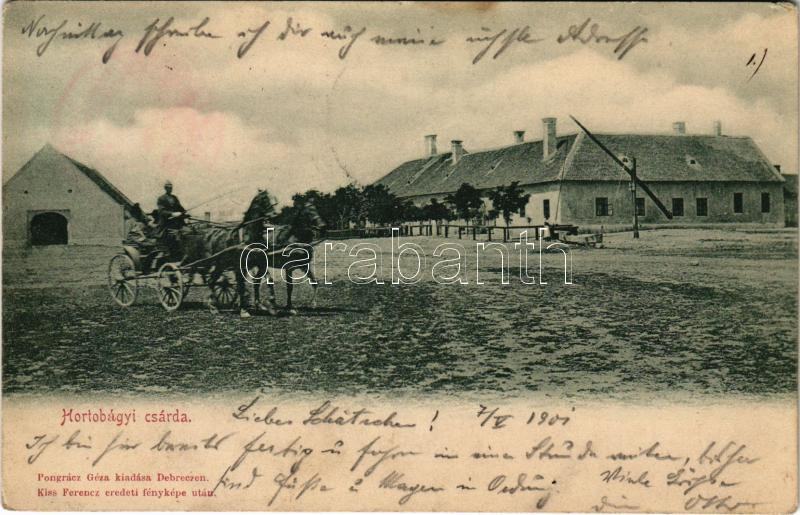 Nachmittag schreibe ich dir auch meine nächste Adresse
1.)
darabanth
Hortobágyi csárda.
Liebes Schätschen! 7/V 1901
Ich bin hier bereits fertig u fahre in einer Stunde weiter, bisher
Pongrácz Géza kiadása Debreczen.
sind Füsse u Magen in Ordnung. Viele Küsse
Kiss Ferencz eredeti fényképe után.
dein Otto